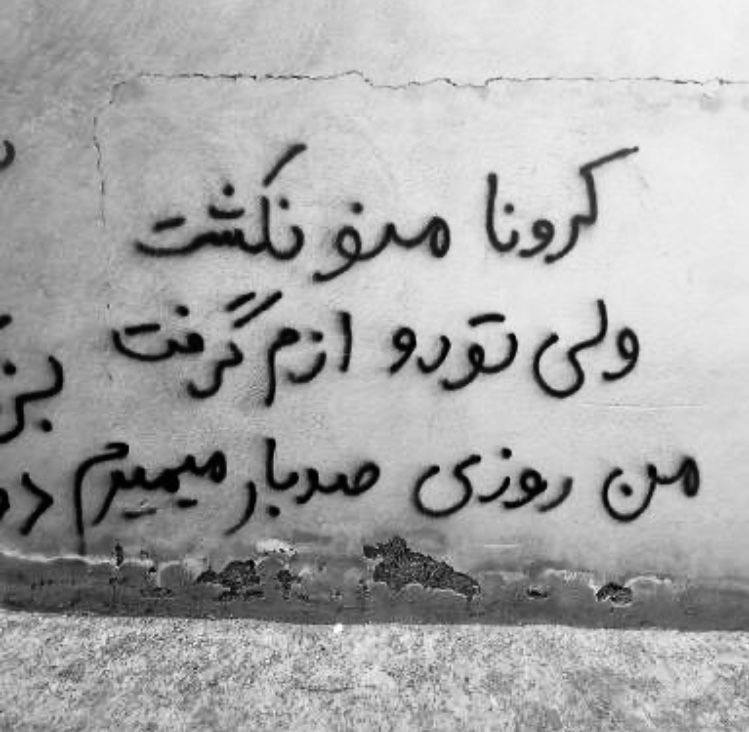 کرونا منو نکشت
ولی تورو ازم گرفت
من روزی صدبار میمیرم